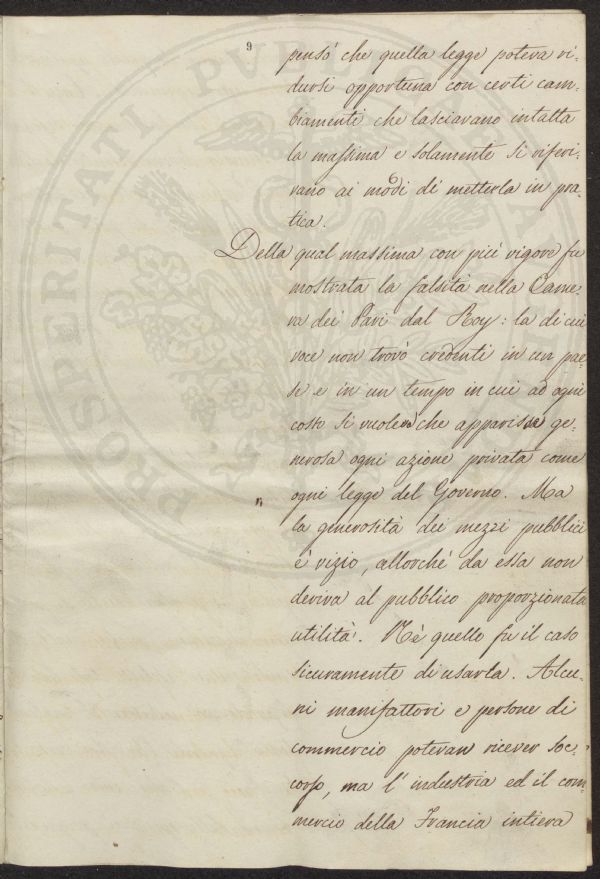 9
pensò che quella legge poteva ri-
dursi opportuna con certi cam-
biamenti che lasciavano intatta
la massima e solamente si riferi-
vano ai modi di metterla in pra-
tica.
Della qual massima con più vigore fu
mostrata la falsità nella Came-
ra dei Pari dal Roy: la di cui
voce non trovò credenti in un pae-
se e in un tempo in cui ad ogni
costo si vuole che apparisse ge-
nerosa ogni azione privata come
ogni legge del Governo. Ma
la generosità dei mezzi pubblici
è vizio, allorchè da essa non
deriva al pubblico proporzionata
utilità. Nè quello fu il caso
sicuramente di usarla. Alcu-
ni manifattori e persone di
commercio potevan ricever soc-
corso, ma l'industria ed il com-
mercio della Francia intiera
PROSPERITATI PUBLICAE